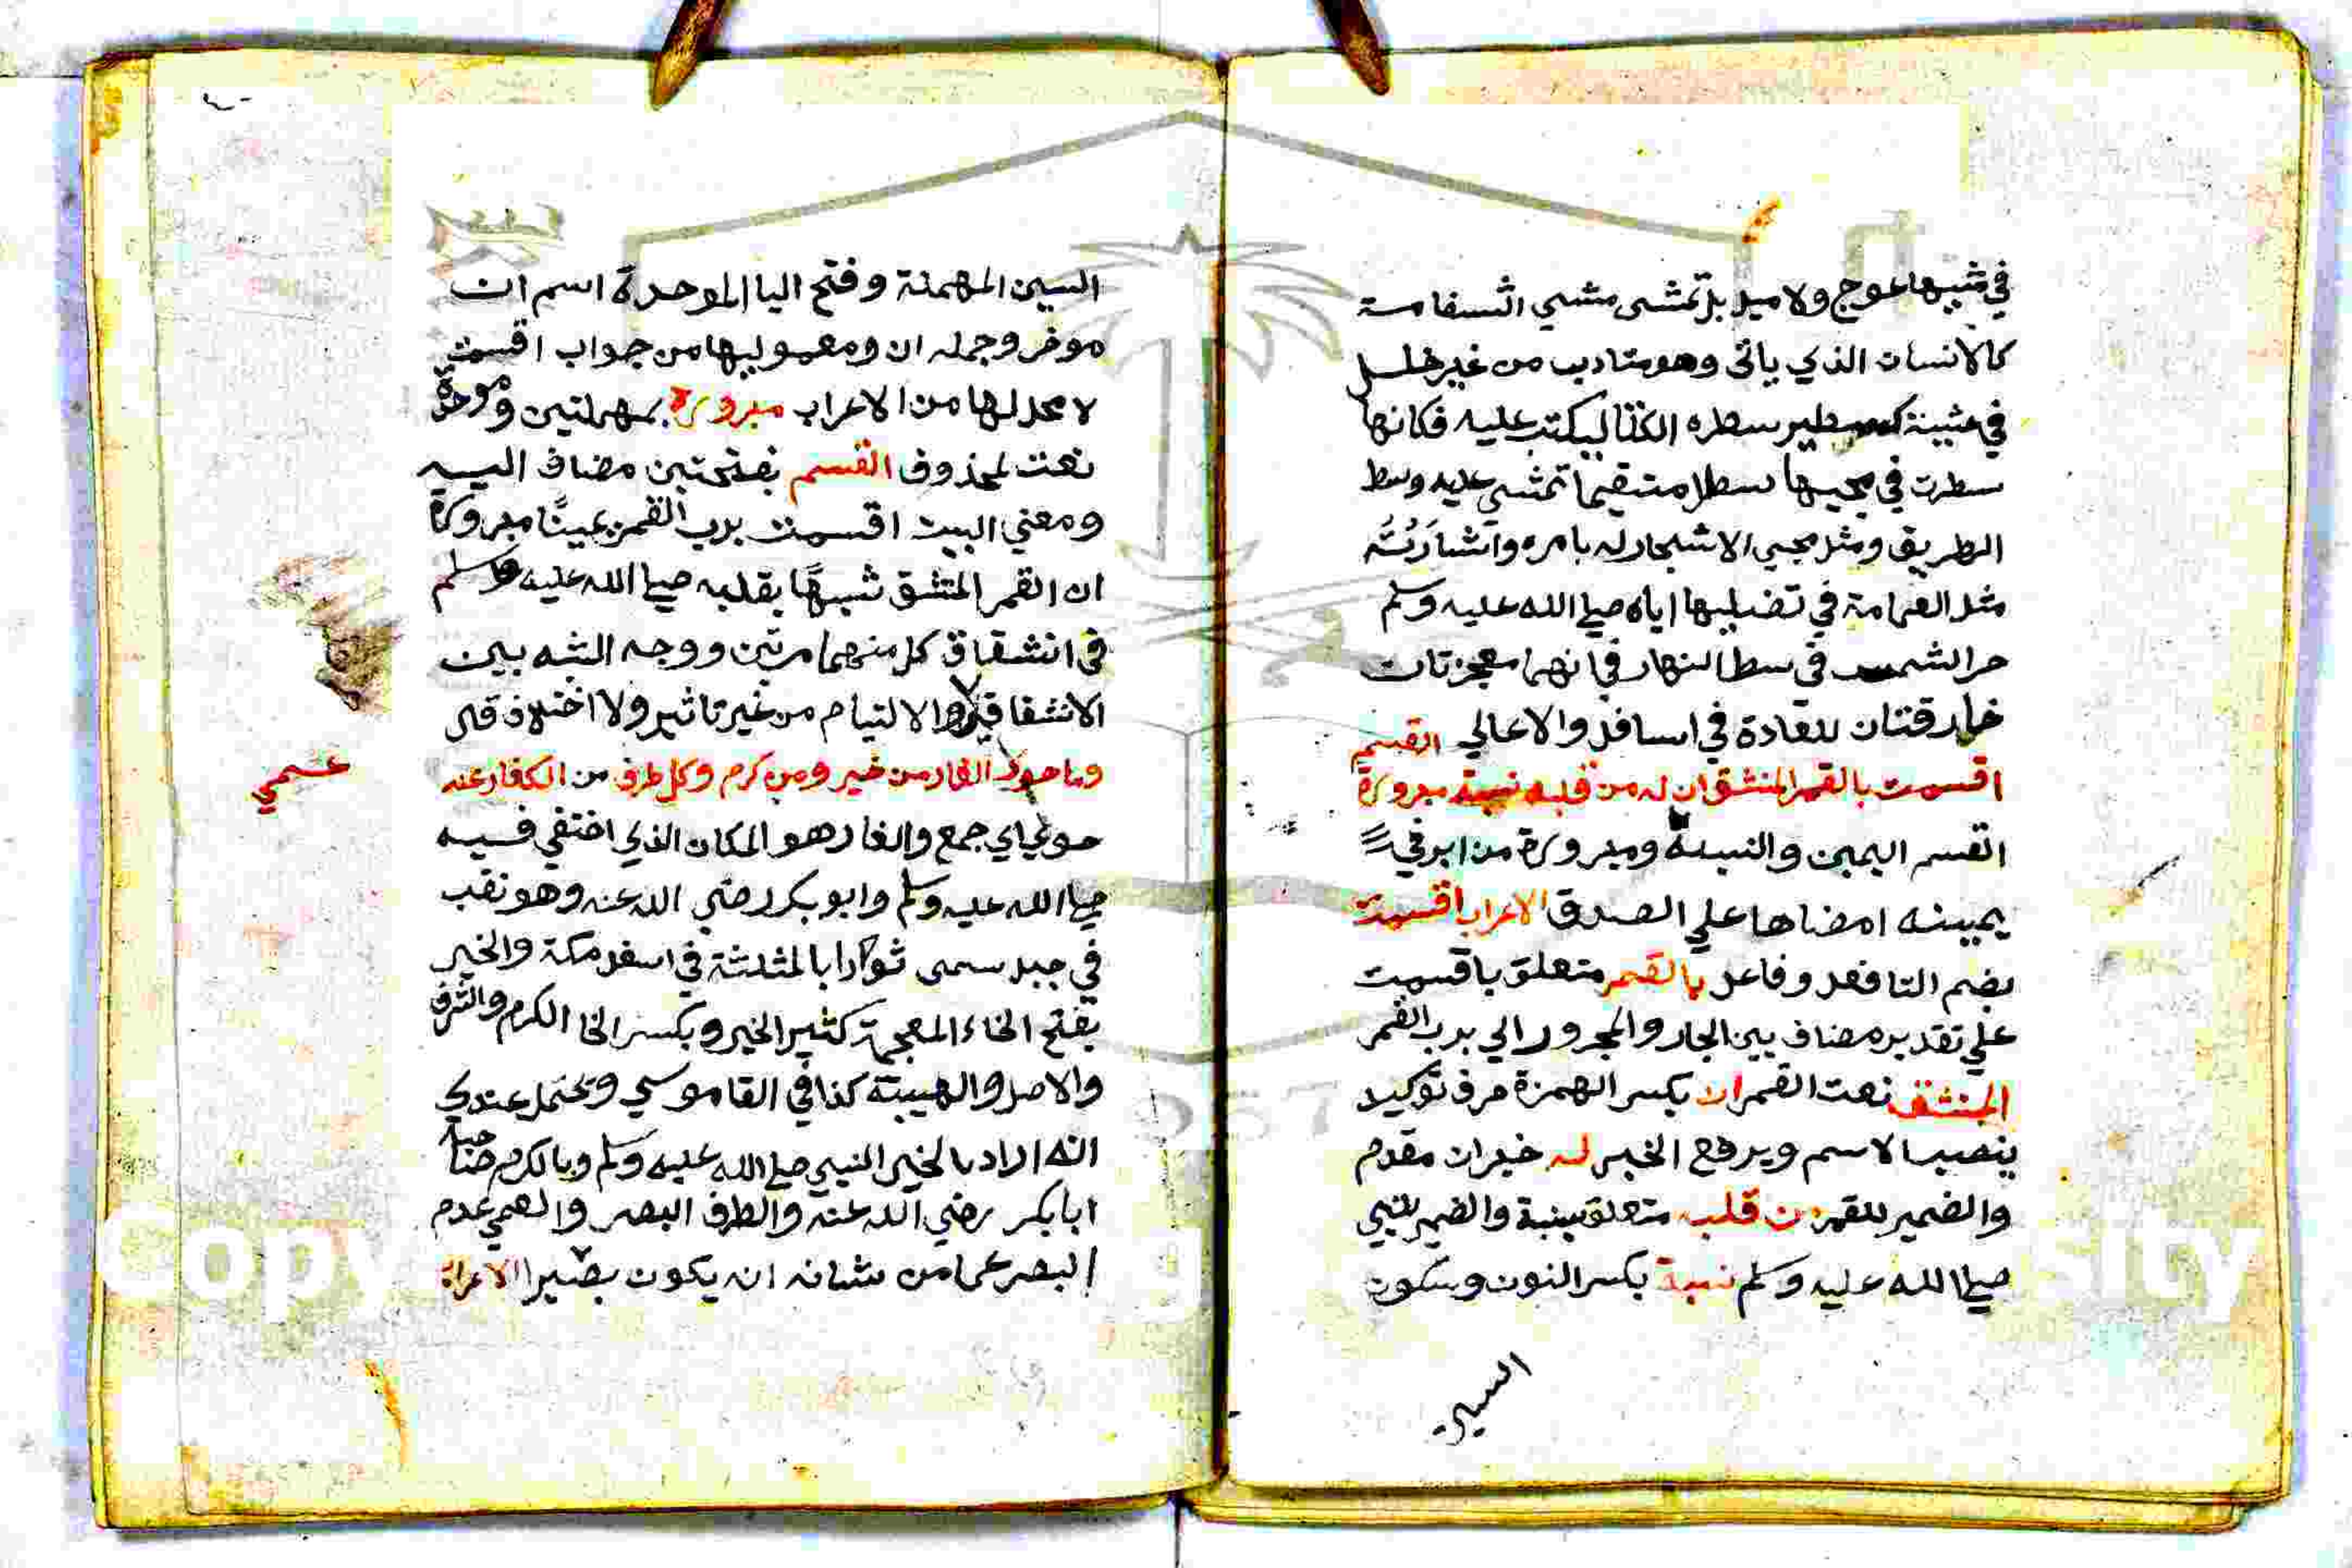 في مشيها عوج ولا ميل بل تمشى مشي استقامة
كالانسان الذي ياتى وهو متادب من غير خلل
في مشيته كتسطير سطره الكتاب ليكتب عليه فكانها
سطرت في مجيها سطرا مستقيما تمشى عليه وسط
الطريق ومثل مجي الاشجار له بامره واشارته
مثل الغمامة في تضليلها اياه صلي الله عليه وسلم
حر الشمس في وسط النهار في انهما معجزتان
خارقتان للعادة في اسافل والاعالي القسم
اقسمت بالقمر المنشق ان له من قلبه نسبة مبرورة
القسم اليمين والنسبة ومبرورة من ابر في
يمينه امضاها علي الصدق الاعراب اقسمت
بضم التا فعل وفاعل بالقمر متعلق باقسمت
علي تقدير مضاف بين الجار والمجرور الي برب القمر
المنشق نعت القمر ان بكسر الهمزة حرف توكيد
ينصب الاسم ويرفع الخبر له خبر ان مقدم
والضمير للقمر من قلبه متعلق بنسبة والضمير للنبي
صلي الله عليه وسلم نسبة بكسر النون وسكون
السين
السين المهملة وفتح البا الموحدة اسم ان
موخر وجمله ان ومعموليها من جواب اقسمت
لا محل لها من الاعراب مبرورة بمهملتين وموحدة
نعت لمحذوف القسم بفتحتين مضاف اليه
ومعني البيت اقسمت برب القمر يمينًا مبرورة
ان القمر المنشق شبهًا بقلبه صلي الله عليه وسلم
في انشقاق كل منهما مرتين ووجه الشبه بين
الانشقاقين والالتيام من غير تاثير ولا اختلاف قال
وما حوى الغار من خير ومن كرم وكل طرف من الكفار عنه
عمي
حوي اي جمع والغار هو المكان الذي اختفي فيه
صلي الله عليه وسلم وابو بكر رضي الله عنه وهو نقب
في جبل سمى ثورا بالمثلثة في اسفل مكة والخير
بفتح الخاء المعجمة كثير الخير وبكسر الخا الكرم والشرف
والاصل والهيبة كذا في القاموس ويحتمل عندي
انه اراد بالخير النبي صلي الله عليه وسلم وبالكرم صاحبه
ابا بكر رضي الله عنه والطرف البصر والعمي عدم
البصر عما من شانه ان يكون بصيرا الاعراب